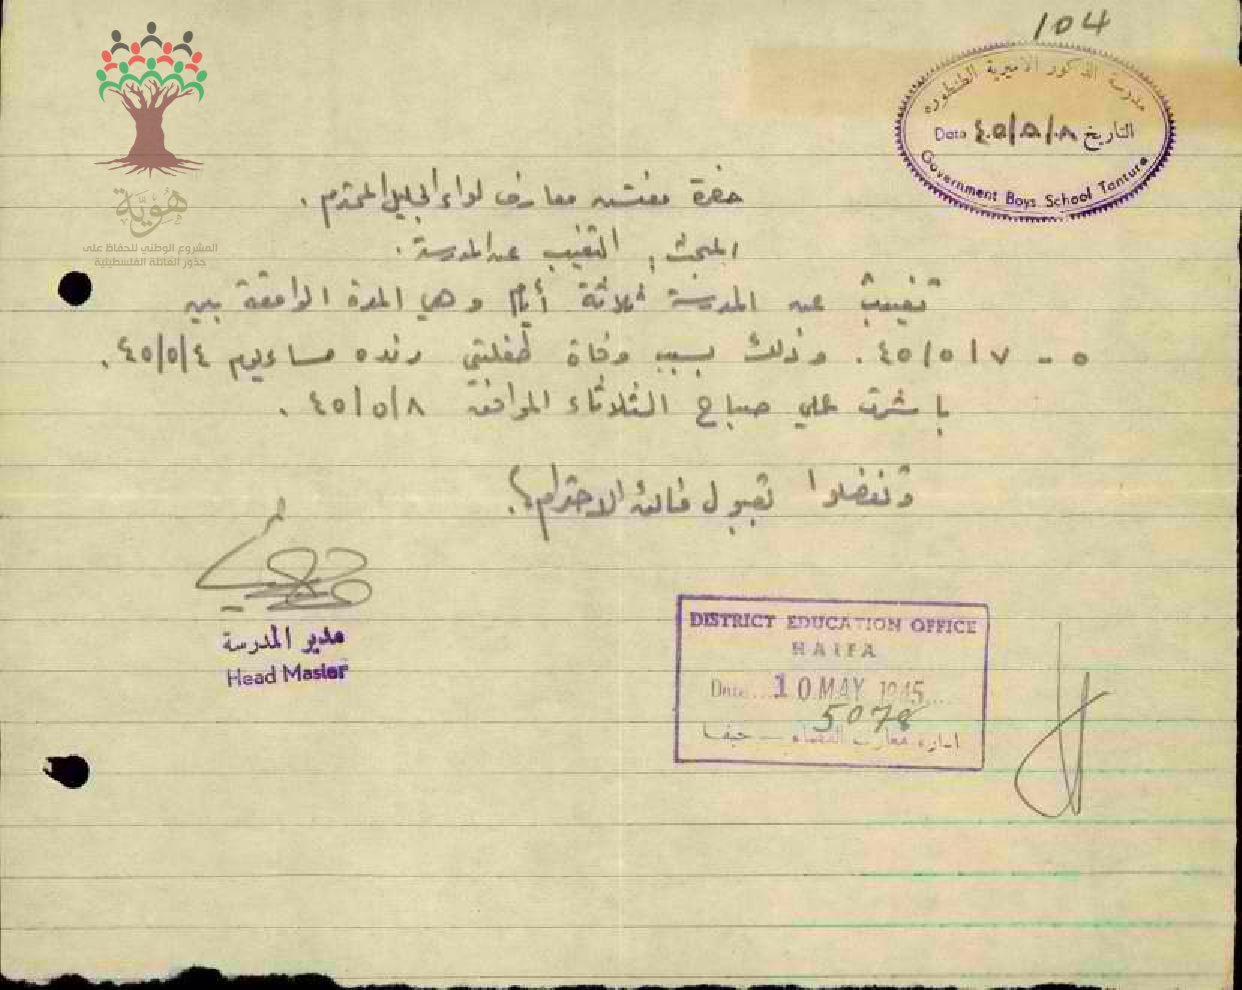 104
مدرسة الذكور الاميرية الطنطوره
Date ٤٥/٥/٨ التاريخ
Government Boys School Tantura
هُوِيَّة
المشروع الوطني للحفاظ على
جذور العائلة الفلسطينية
حضرة مفتش معارف لواء الجليل المحترم .
المبحث : التغيب عن المدرسة .
تغيبت عن المدرسة ثلاثة أيام وهي المدة الواقعة بين
٥ - ٤٥/٥/٧ . وذلك بسبب وفاة طفلتي رنده مساء يوم ٤٥/٥/٤ .
باشرت عملي صباح الثلاثاء الموافق ٤٥/٥/٨ .
وتفضلوا بقبول فائق الاحترام
مدير المدرسة
Head Master
DISTRICT EDUCATION OFFICE
HAIFA
Date 10 MAY 1945
5078
ادارة معارف القضاء - حيفا